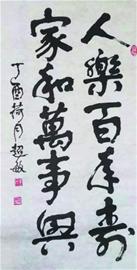 人樂百年壽
家和萬事興
丁酉荷月超敏